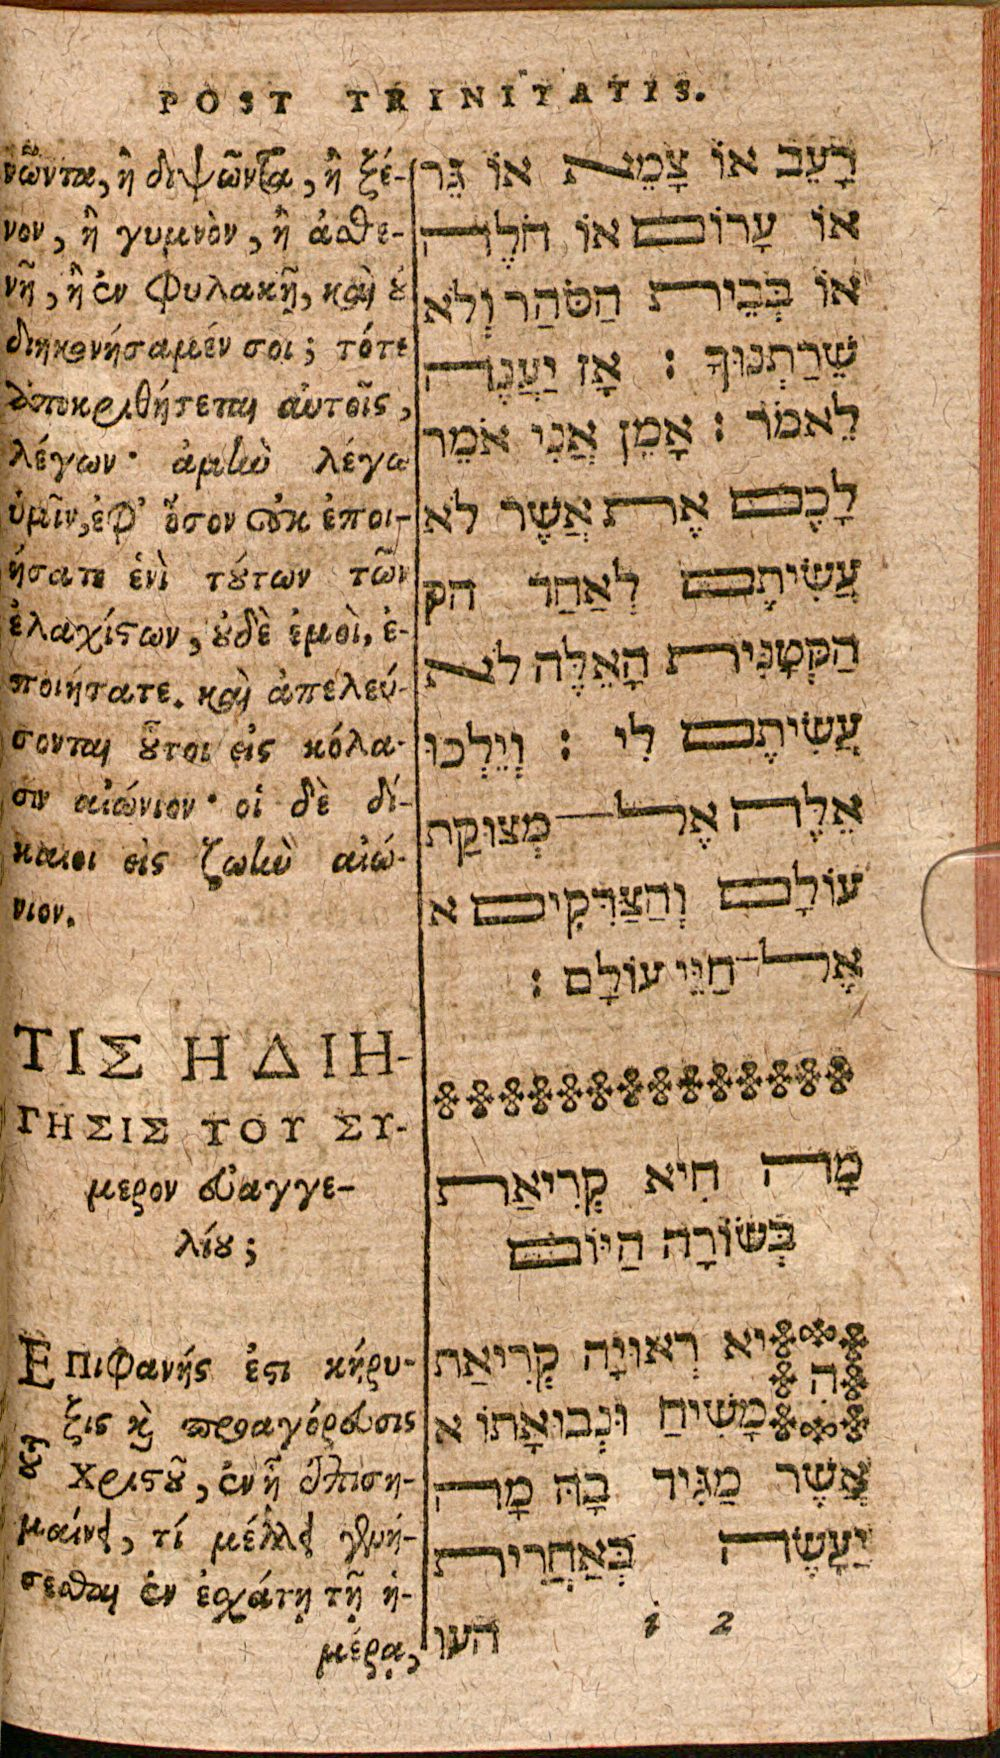 POST TRINITATIS.
νῶντα, ἢ διψῶντα, ἢ ξέ-
νον, ἢ γυμνὸν, ἢ ἀσθε-
νῆ, ἢ ἐν φυλακῇ, καὶ ȣ
διηκονήσαμέν σοι; τότε
ἀποκριθήσεται αὐτοῖς,
λέγων· ἀμὴν λέγω
ὑμῖν, ἐφ' ὅσον οὐκ ἐποι-
ήσατε ἑνὶ τȣ́των τῶν
ἐλαχίςων, ȣδὲ ἐμοὶ, ἐ-
ποιήτατε. καὶ ἀπελεύ-
σονται ȣ̃τοι εἰς κόλα-
σιν αἰώνιον· οἱ δὲ δί-
καιοι εἰς ζωὴν αἰώ-
νιον.
ΤΙΣ Η ΔΙΗ-
ΓΗΣΙΣ ΤΟΥ ΣΥ-
μερον εὐαγγε-
λίȣ;
ΕΠιφανής ἐςι κήρυ-
ξις κὶ προαγόρευσις
Χριςȣ͂, ἐν ᾗ ἐπιση-
μαίνει, τί μέλλει γενή-
σεσθαι ἐν ἐσχάτῃ τῇ ἡ-
μέρᾳ,
רָעֵב אוֹ צָמֵא אוֹ גֵּר
אוֹ עָרוֹם אוֹ חֹלֶה
אוֹ בְּבֵית הַסֹּהַר וְלֹא
שֵׁרַתְנוּךָ : אָז יַעֲנֶה
לֵאמֹר : אָמֵן אֲנִי אֹמֵר
לָכֶם אֶת אֲשֶׁר לֹא
עֲשִׂיתֶם לְאַחַר הק
הַקְּטָנִּית הָאֵלֶּה לֹא
עֲשִׂיתֶם לִי : וְיֵלְכוּ
אֵלֶּה אֶל מְצוּקַת
עוֹלָם וְהַצַּדִּקִים א
אֶל חַיֵּי עוֹלָם :
מָה הִיא קְרִיאַת
בְּשׂוֹרָה הַיּוֹם
הִיא רְאוּיָה קְרִיאַת
מָשִׁיחַ וּנְבוּאָתוֹ א
אֲשֶׁר מַגִּיד בָּהּ מָה
יַעֲשֶׂה בְּאַחֲרִית
i 2
העו